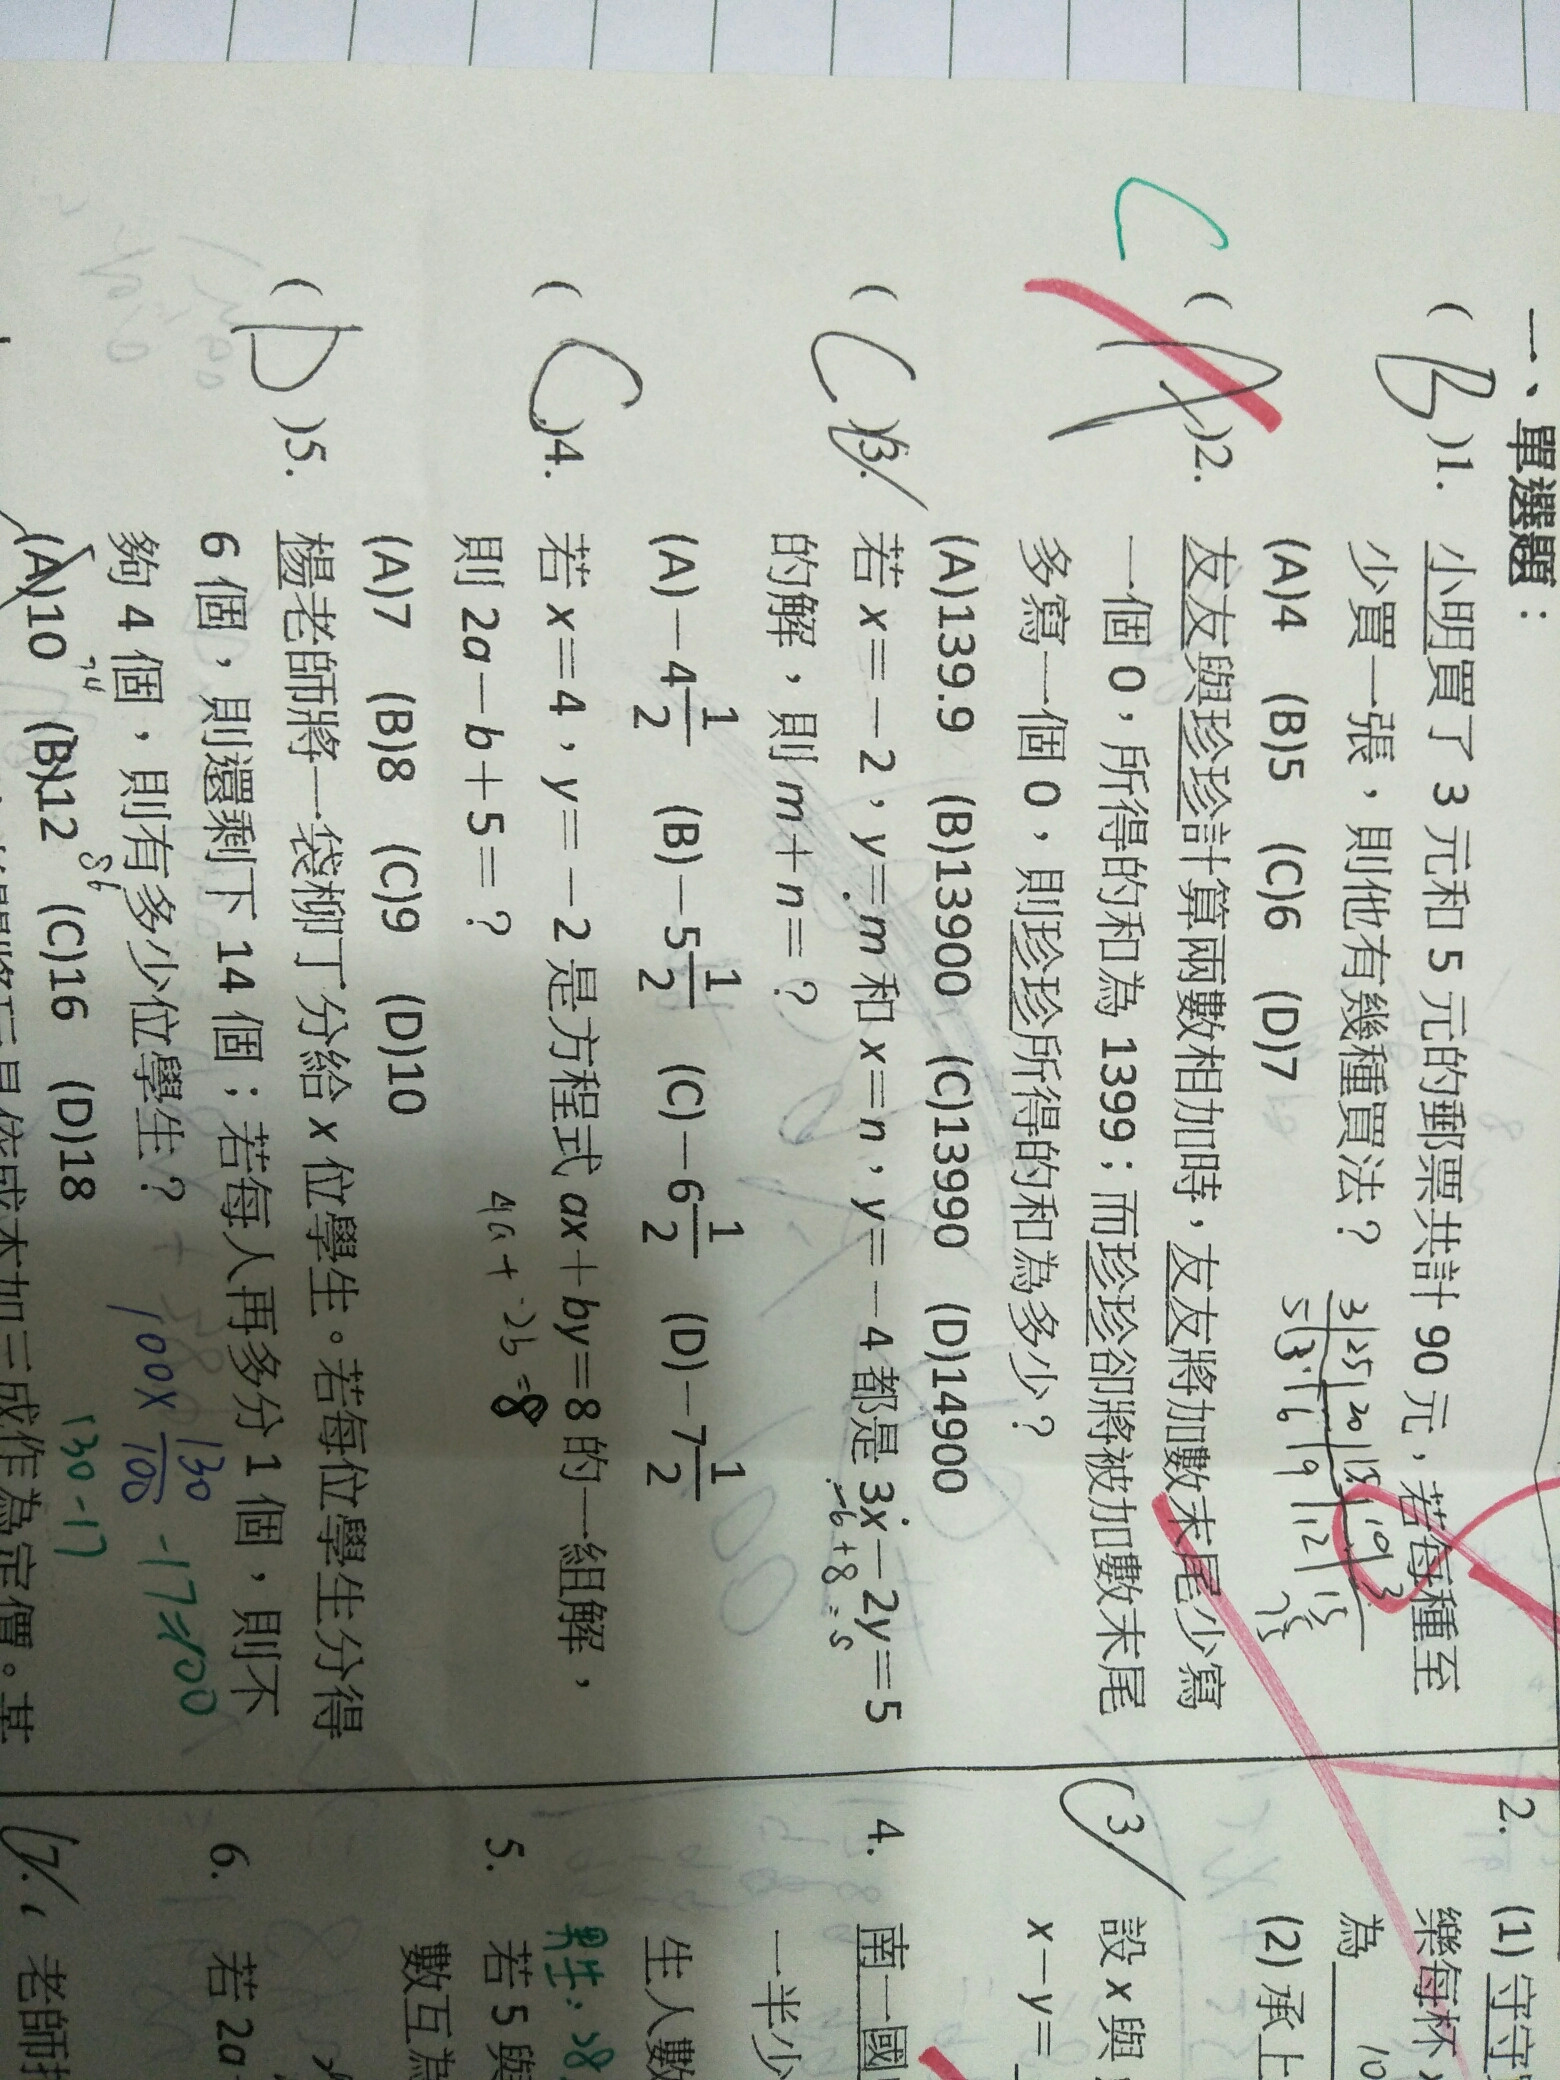 一、單選題：
(B)1. 小明買了 3 元和 5 元的郵票共計 90 元，若每種至
少買一張，則他有幾種買法？
(A)4 (B)5 (C)6 (D)7
3 25 20 15 10
5 3 6 9 12 15
C (A)2. 友友與珍珍計算兩數相加時，友友將加數末尾少寫
一個 0，所得的和為 1399；而珍珍卻將被加數末尾
多寫一個 0，則珍珍所得的和為多少？
(A)139.9 (B)13900 (C)13990 (D)14900
(C)3. 若 x＝－2，y＝m 和 x＝n，y＝－4 都是 3x－2y＝5
-6+8=5
的解，則 m＋n＝？
(A)－4 1/2 (B)－5 1/2 (C)－6 1/2 (D)－7 1/2
(C)4. 若 x＝4，y＝－2 是方程式 ax＋by＝8 的一組解，
則 2a－b＋5＝？
4a+-2b=8
(A)7 (B)8 (C)9 (D)10
(D)5. 楊老師將一袋柳丁分給 x 位學生。若每位學生分得
6 個，則還剩下 14 個；若每人再多分 1 個，則不
夠 4 個，則有多少位學生？
100X 130/100 -17=100
130-17
(A)10 (B)12 (C)16 (D)18
74 86
2. (1) 守守
樂每杯
為
(2) 承上
3. 設 x 與
x－y＝
4. 南一國
一半少
生人數
男生：28
5. 若 5 與
數互為
6. 若 2a
7. 老師